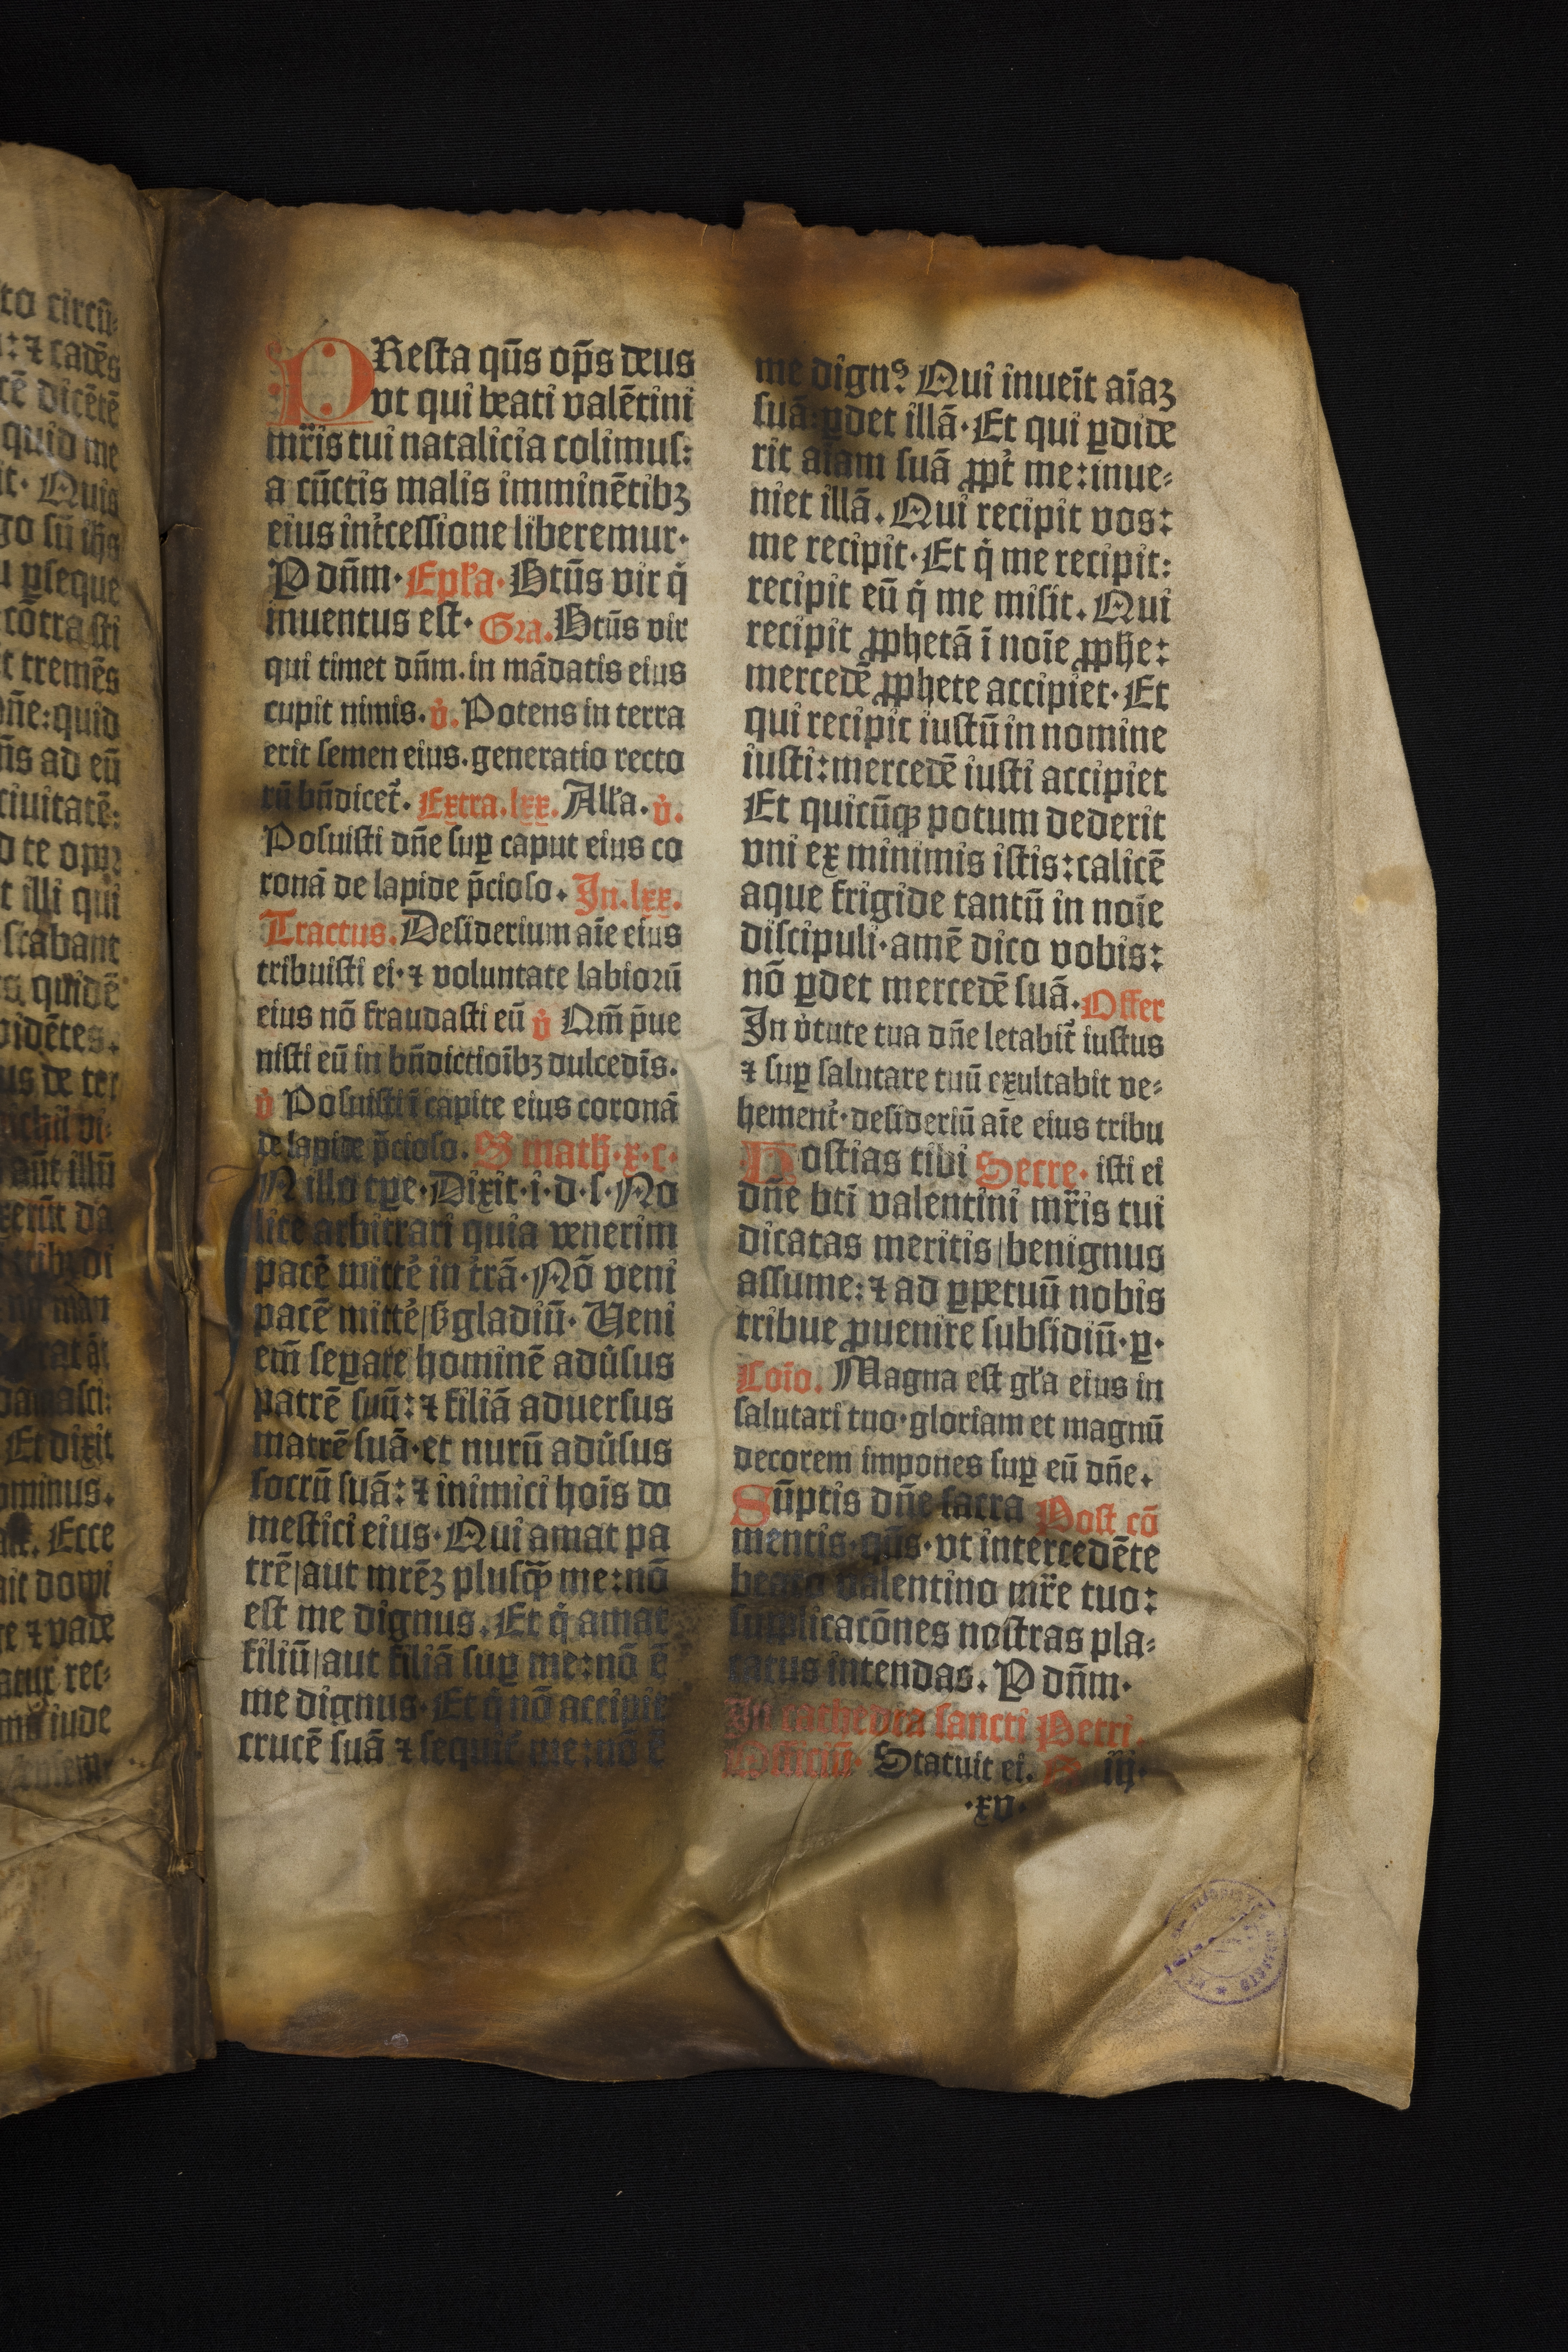 to circū-
: ⁊ cadēs
cē dicētē
quid me
it. Quis
go sū ih̄s
u ꝑseque
cōtra sti
t tremēs
on̄e: quid
n̄s ad eū
ciuitatē:
d te opꝫ
t illi qui
stabant
quidē
vidētes.
us de ter
nichil vi-
aūt illū
xerūt da
tribꝰ di
nō man
damasci:
Et dixit
ominus.
Ecce
ait domi
re ⁊ vade
rec-
iude
PResta qūs op̄s deus
vt qui beati valētini
mr̄is tui natalicia colimus:
a cūctis malis imminētibꝫ
eius int̄cessione liberemur.
P dn̄m. Epl̄a. Btūs vir q̇
inuentus est. Gra. Btūs vir
qui timet dn̄m. in mādatis eius
cupit nimis. v̇. Potens in terra
erit semen eius. generatio recto
rū bn̄dicet̄. Extra. lxx. All̄a. v̇.
Posuisti dn̄e suꝑ caput eius co
ronā de lapide p̄cioso. In. lxx.
Tractus. Desiderium aīe eius
tribuisti ei. ⁊ voluntate labiorū
eius nō fraudasti eū v̇ Qm̄ p̄ue
nisti eū in bn̄dictioībꝫ dulcedīs.
v̇ Posuisti ī capite eius coronā
de lapide p̄cioso. S math. x. c.
IN illo tꝑe. Dixit. i. d. s. No
lite arbitrari quia venerim
pacē mittē in trā. Nō veni
pacē mittē/sꝫ gladiū. Ueni
em̄ seꝑare hominē adūsus
patrē suū: ⁊ filiā aduersus
matrē suā. et nurū adūsus
socrū suā: ⁊ inimici hoīs do
mestici eius. Qui amat pa
trē/aut mrēꝫ plusꝙ̄ me: nō
est me dignus. Et q̇ amat
filiū/aut filiā suꝑ me: nō ē
me dignus. Et q̇ nō accipit
crucē suā ⁊ sequit̄ me: nō ē
me dignꝰ. Qui inueīt aīaꝫ
suā: ꝑdet illā. Et qui ꝑdide
rit aīam suā ꝓpt̄ me: inue-
niet illā. Qui recipit vos:
me recipit. Et q̇ me recipit:
recipit eū q̇ me misit. Qui
recipit ꝓphetā ī noīe ꝓphe:
mercedē ꝓphete accipiet. Et
qui recipit iustū in nomine
iusti: mercedē iusti accipiet
Et quicūqꝫ potum dederit
vni ex minimis istis: calicē
aque frigide tantū in noīe
discipuli. amē dico vobis:
nō ꝑdet mercedē suā. Offer
In v̇tute tua dn̄e letabit̄ iustus
⁊ suꝑ salutare tuū exultabit ve-
hement̄. desideriū aīe eius tribu
Hostias tibi Secre. isti ei
dn̄e bti valentini mr̄is tui
dicatas meritis/benignus
assume: ⁊ ad ꝑpetuū nobis
tribue ꝓuenire subsidiū. ꝑ.
Coīo. Magna est gl̄a eius in
salutari tuo. gloriam et magnū
decorem impones suꝑ eū dn̄e.
Sūptis dn̄e sacra Post cō
mentis. qūs. vt intercedēte
beato valentino mr̄e tuo:
supplicacōnes nostras pla-
catus intendas. P dn̄m.
In cathedra sancti Petri.
Officiū. Statuit ei. iij.
.xv.